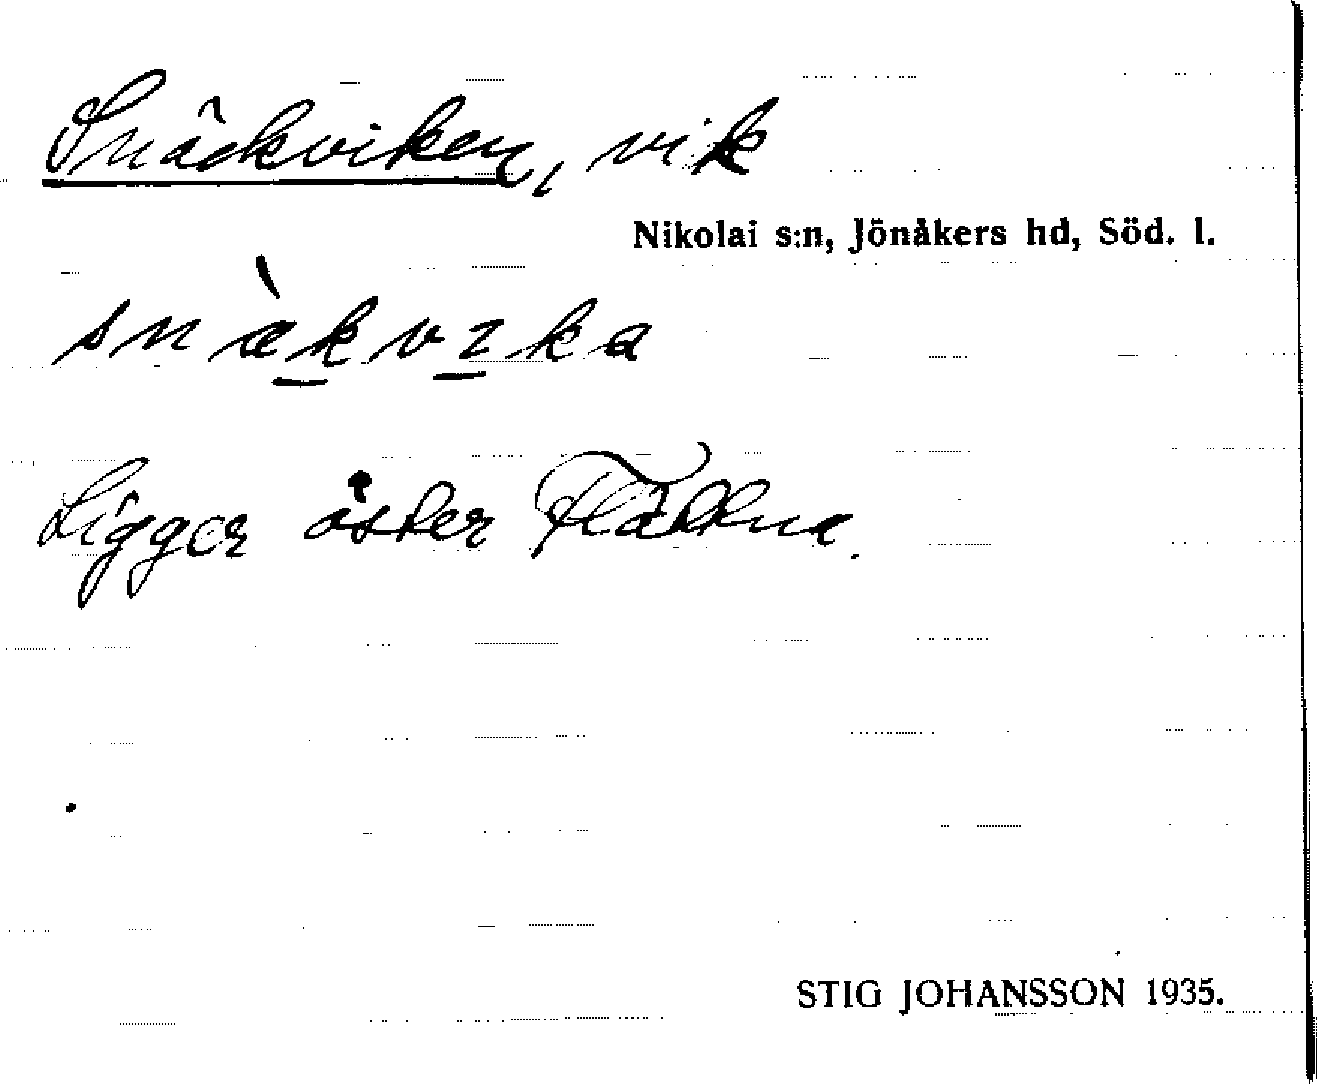 Snäckviken, vik
Nikolai s:n, Jönåkers hd, Söd. l.
snæ̀kvıka
Ligger öster Flättna.
STIG JOHANSSON 1935.